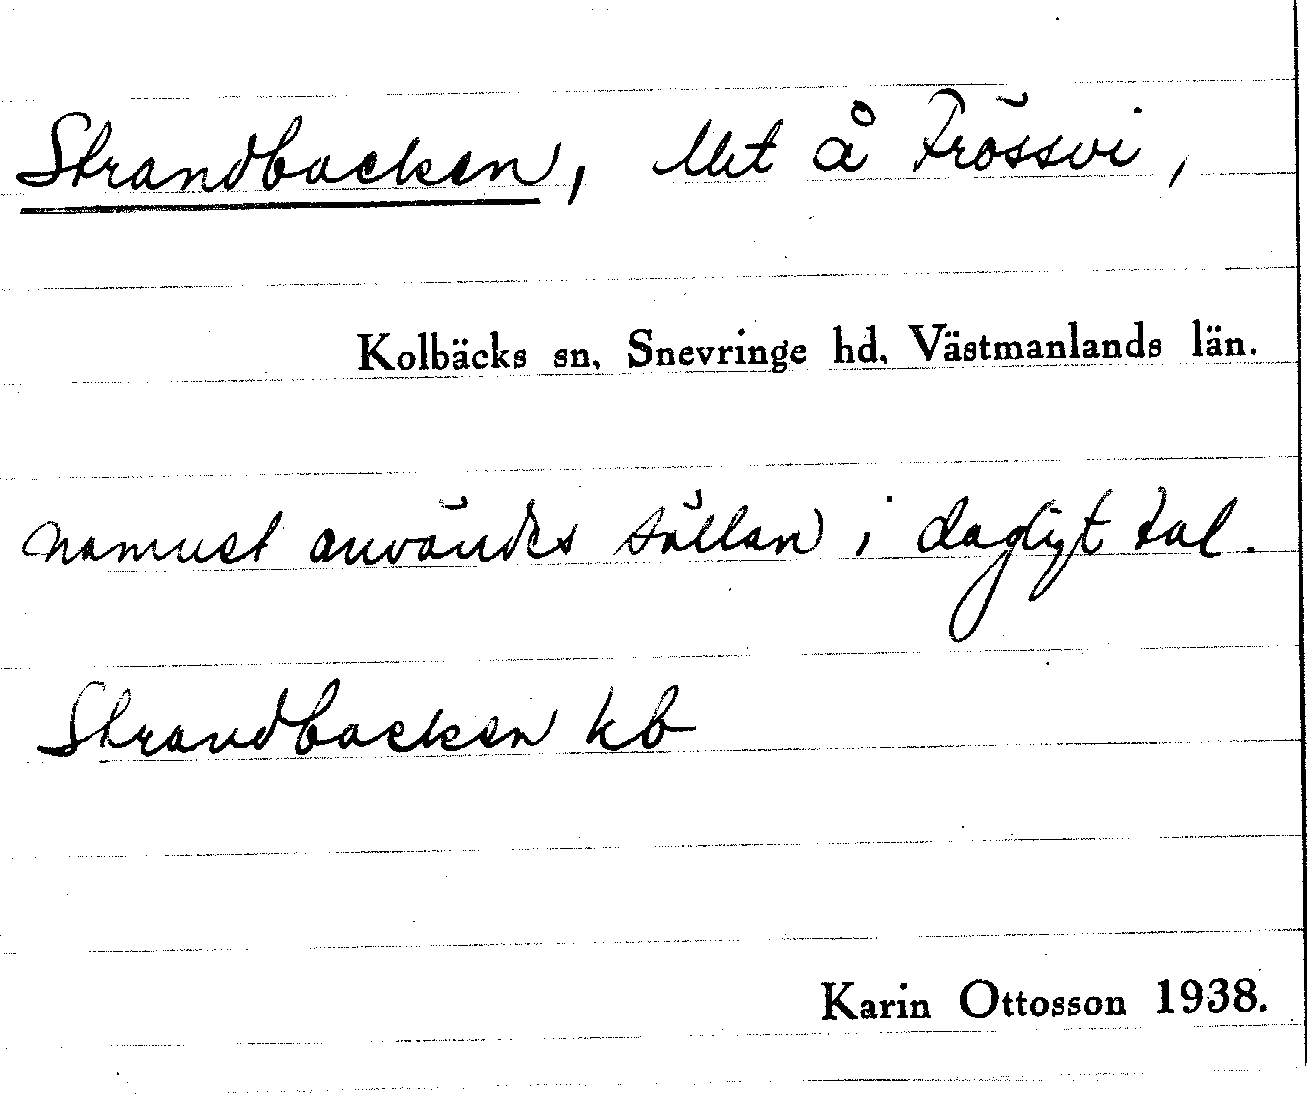 Strandbacken, lht å Frössvi,
Kolbäcks sn, Snevringe hd, Västmanlands län.
namnet användes sällan i dagligt tal.
Strandbacken kb
Karin Ottosson 1938.